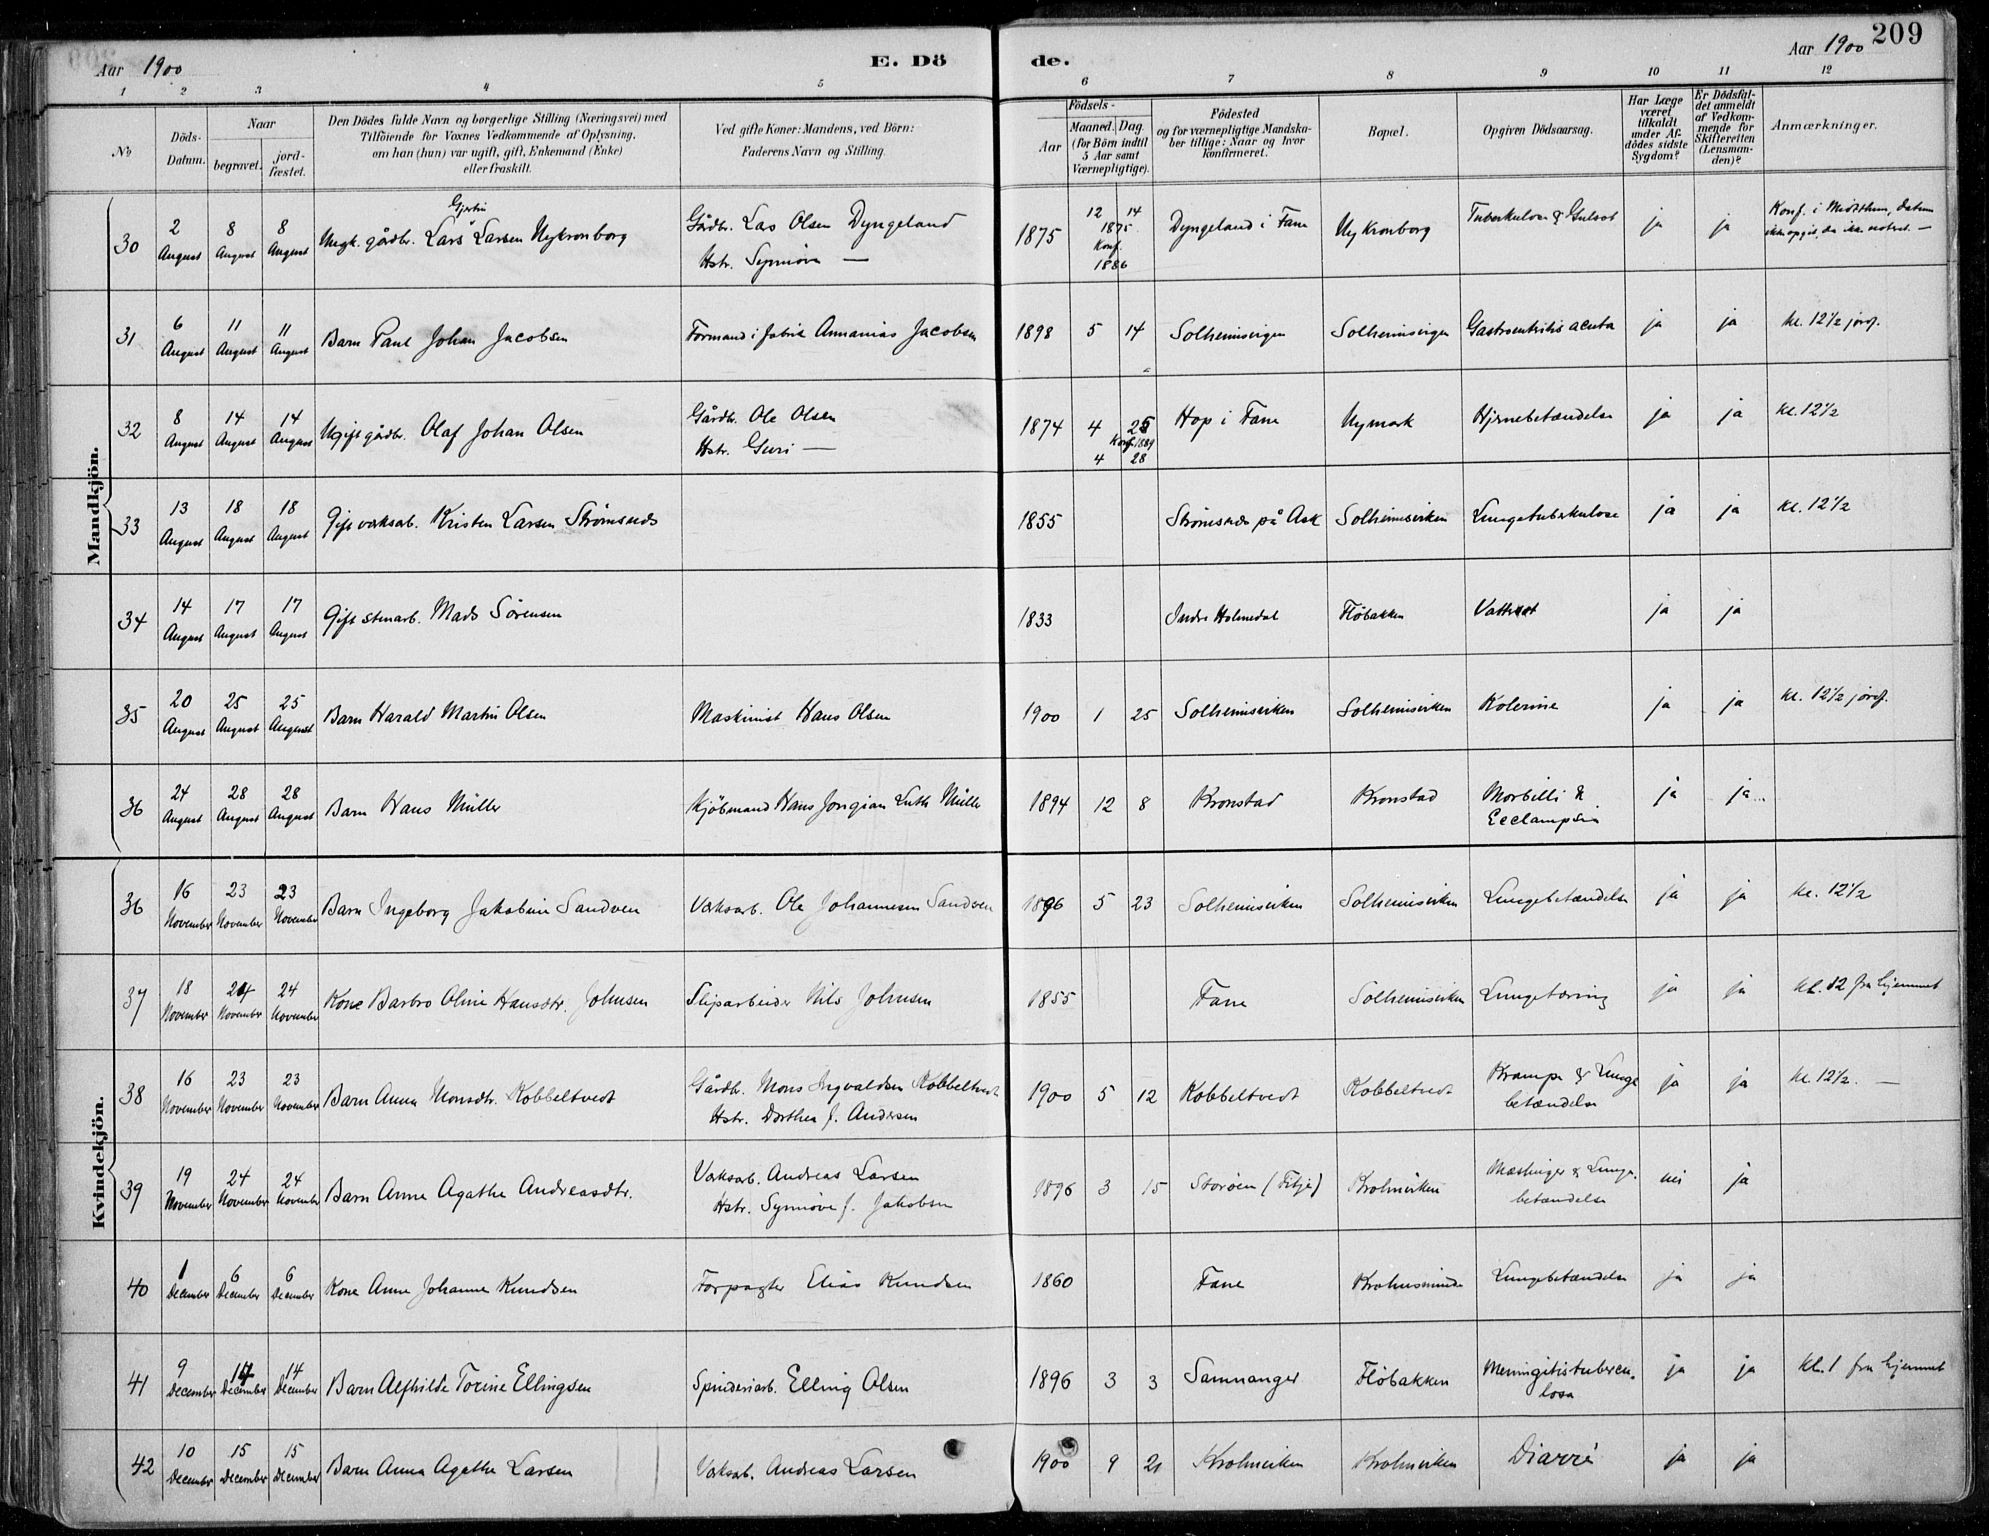 Aar 1900 E. Dö de. Aar 1900 209
1 2 3 4 5 6 7 8 9 10 11 12
No
Döds-Datum.
Naar
begravet.
jordfæstet.
Den Dödes fulde Navn og borgerlige Stilling (Næringsvei) med
Tilföiende for Voxnes Vedkommende af Oplysning,
om han (hun) var ugift, gift, Enkemand (Enke)
eller fraskilt.
Ved gifte Koner: Mandens, ved Börn:
Faderens Navn og Stilling.
Födsels-
Aar
Maaned. Dag.
(for Börn indtil
5 Aar samt
Værnepligtige).
Födested
og for værnepligtige Mandska-
ber tillige: Naar og hvor
konfirmeret.
Bopæl.
Opgiven Dödsaarsag.
Har Læge
været
tilkaldt
under Af-
dödes sidste
Sygdom?
Er Dödsfal-
det anmeldt
af Vedkom-
mende for
Skifteretten
(Lensman-
den)?
Anmærkninger.
Mandkjön.
30 2 August 8 August 8 August Ungk. gårdbr. Lars Gjertin Larsen Nykronborg Gårdbr. Las Olsen Dyngeland Hstr. Synnöve — 1875 12 14 1875 Konf. 1886 Dyngeland i Fane Nykronborg Tuberkulose & Gulsot ja ja Konf. i Midtthun, datum ikke opgit, da ikke noteret. —
31 6 August 11 August 11 August Barn Paul Johan Jacobsen Formand i fabrik Annanias Jacobsen 1898 5 14 Solheimsvigen Solheimsvigen Gastroentritis acuta ja ja kl. 12½ jordf.
32 8 August 14 August 14 August Ugift gårdbr. Olaf Johan Olsen Gårdbr. Ole Olsen Hstr. Guri — 1874 4 25 Konf. 1889 4 28 Hop i Fane Nymark Hjernebetændelse ja ja kl. 12½
33 13 August 18 August 18 August Gift værksarb. Kristen Larsen Strømsnes 1855 Strømsnes på Ask Solheimsviken Lungetuberkulose ja ja kl. 12½
34 14 August 17 August 17 August Gift stenarb. Mads Sörensen 1833 Indre Holmedal Flöbakken Vattersot ja ja
35 20 August 25 August 25 August Barn Harald Martin Olsen Maskinist Hans Olsen 1900 1 25 Solheimsviken Solheimsviken Kolerine ja ja kl. 12½ jordf.
36 24 August 28 August 28 August Barn Hans Müller Kjöbmand Hans Jørgian Luth Müller 1894 12 8 Kronstad Kronstad Morbilli & Ecclampsia ja ja
Kvindekjön.
36 16 November 23 November 23 November Barn Ingeborg Jakobine Sandven Værksarb. Ole Johannesen Sandven 1896 5 23 Solheimsviken Solheimsviken Lungebetændelse ja ja kl. 12½
37 18 November 24 November 24 November Kone Barbro Oline Hansdtr. Johnsen Sliparbeider Nils Johnsen 1855 Fane Solheimsviken Lungetæring ja ja kl. 12 fra hjemmet
38 16 November 23 November 23 November Barn Anna Monsdtr. Kobbeltvedt Gårdbr. Mons Ingvaldsen Kobbeltvedt Hstr. Dorthea f. Andersen 1900 5 12 Kobbeltvedt Kobbeltvedt Krampe & Lungebetændelse ja ja kl. 12½. —
39 19 November 24 November 24 November Barn Anne Agathe Andreasdtr. Værksarb. Andreas Larsen Hstr. Synnöve f. Jakobsen 1896 3 15 Storöen (Fitje) Krohnviken Mæslinger & Lungebetændelse nei ja
40 1 December 6 December 6 December Kone Anne Johanne Knudsen Forpagter Elias Knudsen 1860 Fane Krohnsminde Lungebetændelse ja ja
41 9 December 14 December 14 December Barn Alfhilde Torine Ellingsen Spinderiarb. Elling Olsen 1896 3 3 Samnanger Flöbakken Meningitis tuberculosa ja ja kl. 1 fra hjemmet
42 10 December 15 December 15 December Barn Anna Agathe Larsen Værksarb. Andreas Larsen 1900 9 21 Krohnviken Krohnviken Diarré ja ja